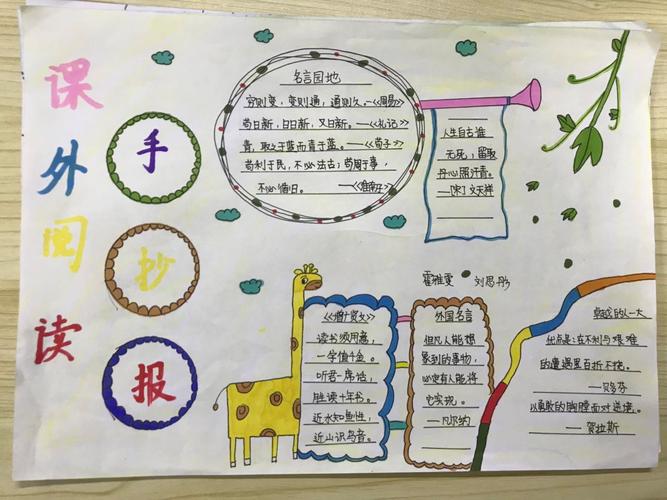 课外阅读
手
抄
报
名言园地
穷则变，变则通，通则久。—《周易》
苟日新，日日新，又日新。—《礼记》
青，取之于蓝而青于蓝。—《荀子》
苟利于民，不必法古；苟周于事，
不必循旧。——《淮南子》
人生自古谁
无死，留取
丹心照汗青。
—[宋]文天祥
霍雅雯 刘思彤
《增广贤文》
读书须用意，
一字值千金。
听君一席话，
胜读十年书。
近水知鱼性，
近山识鸟音。
外国名言
但凡人能想
象到的事物，
必定有人能将
它实现。
—凡尔纳
卓越的人一大
优点是：在不利与艰难
的遭遇里百折不挠。
——贝多芬
以勇敢的胸膛面对逆境。
——贺拉斯